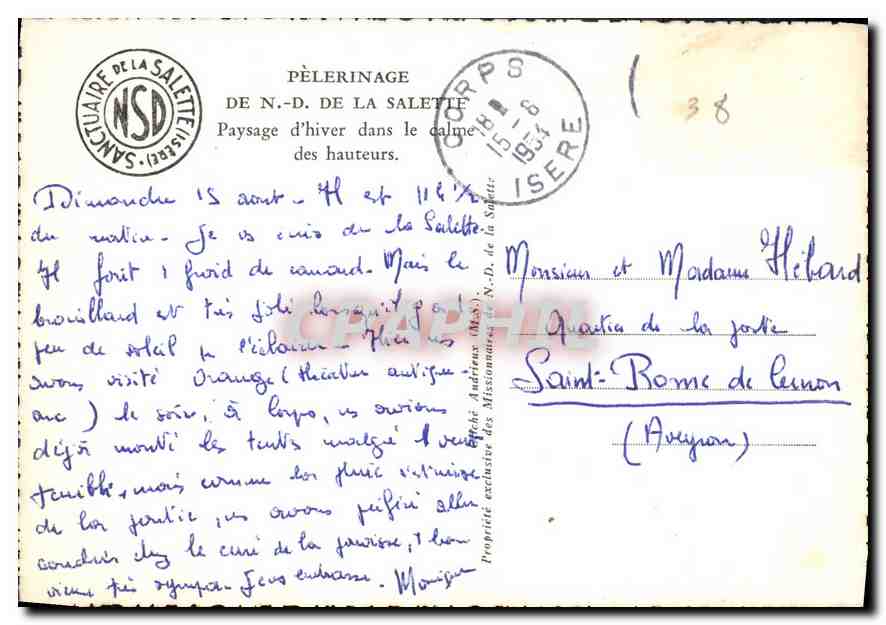 SANCTUAIRE DE LA SALETTE (ISÈRE) •
NSD
PÈLERINAGE
DE N.-D. DE LA SALETTE
Paysage d'hiver dans le calme
des hauteurs.
CORPS
18 H
15 - 8
1954
ISERE
38
Dimanche 15 aout - Il est 11 h 1/2
du matin - Je vs écris de la Salette
Il fait 1 froid de canard - Mais le
brouillard est très joli lorsqu'il y a 1
peu de soleil pr l'éclairer - Hier ns
avons visité Orange (théâtre antique -
arc) le soir, à Corps, ns avions
déjà monté les tentes malgré 1 vent
terrible, mais comme la pluie
de la partie, ns avons préféré aller
coucher chez le curé de la paroisse, 1 bon
vieux très sympa - Je vs embrasse - Monique
Cliché Andrieux (M.S.)
Propriété exclusive des Missionnaires de N.-D. de la Salette
Monsieur et Madame Hébard
Quartier de la
Saint-Rome de Cernon
(Aveyron)
CPAPHIL